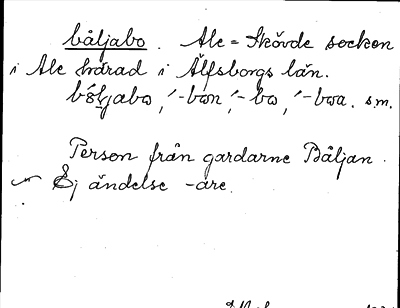 båljabo. Ale-Skövde socken
i Ale härad i Älfsborgs län.
Person från gardarne Båljan.
Ej ändelse -are.